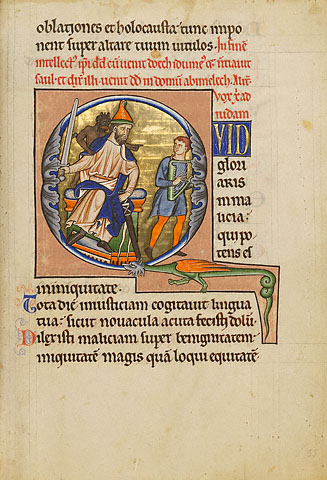 oblationes et holocausta: tunc impo
nent super altare tuum vitulos. In fine
uenit doech
saul et illi. uenit dd in domū abimelech.
vox ad
iudam.
QVID
glori
aris
in ma
licia:
qui po
tens es
in iniquitate.
Tota die iniusticiam cogitauit lingua
tua: sicut nouacula acuta fecisti dolū.
Dilexisti maliciam super benignitatem:
iniquitatē magis quā loqui equitatē